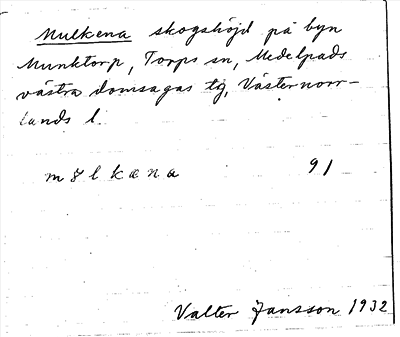 Mulkena skogshöjd på byn
Munktorp, Torps sn, Medelpads
västra domsagas tg, Västernorr-
lands l.
mɤlkæna 91
Valter Jansson 1932